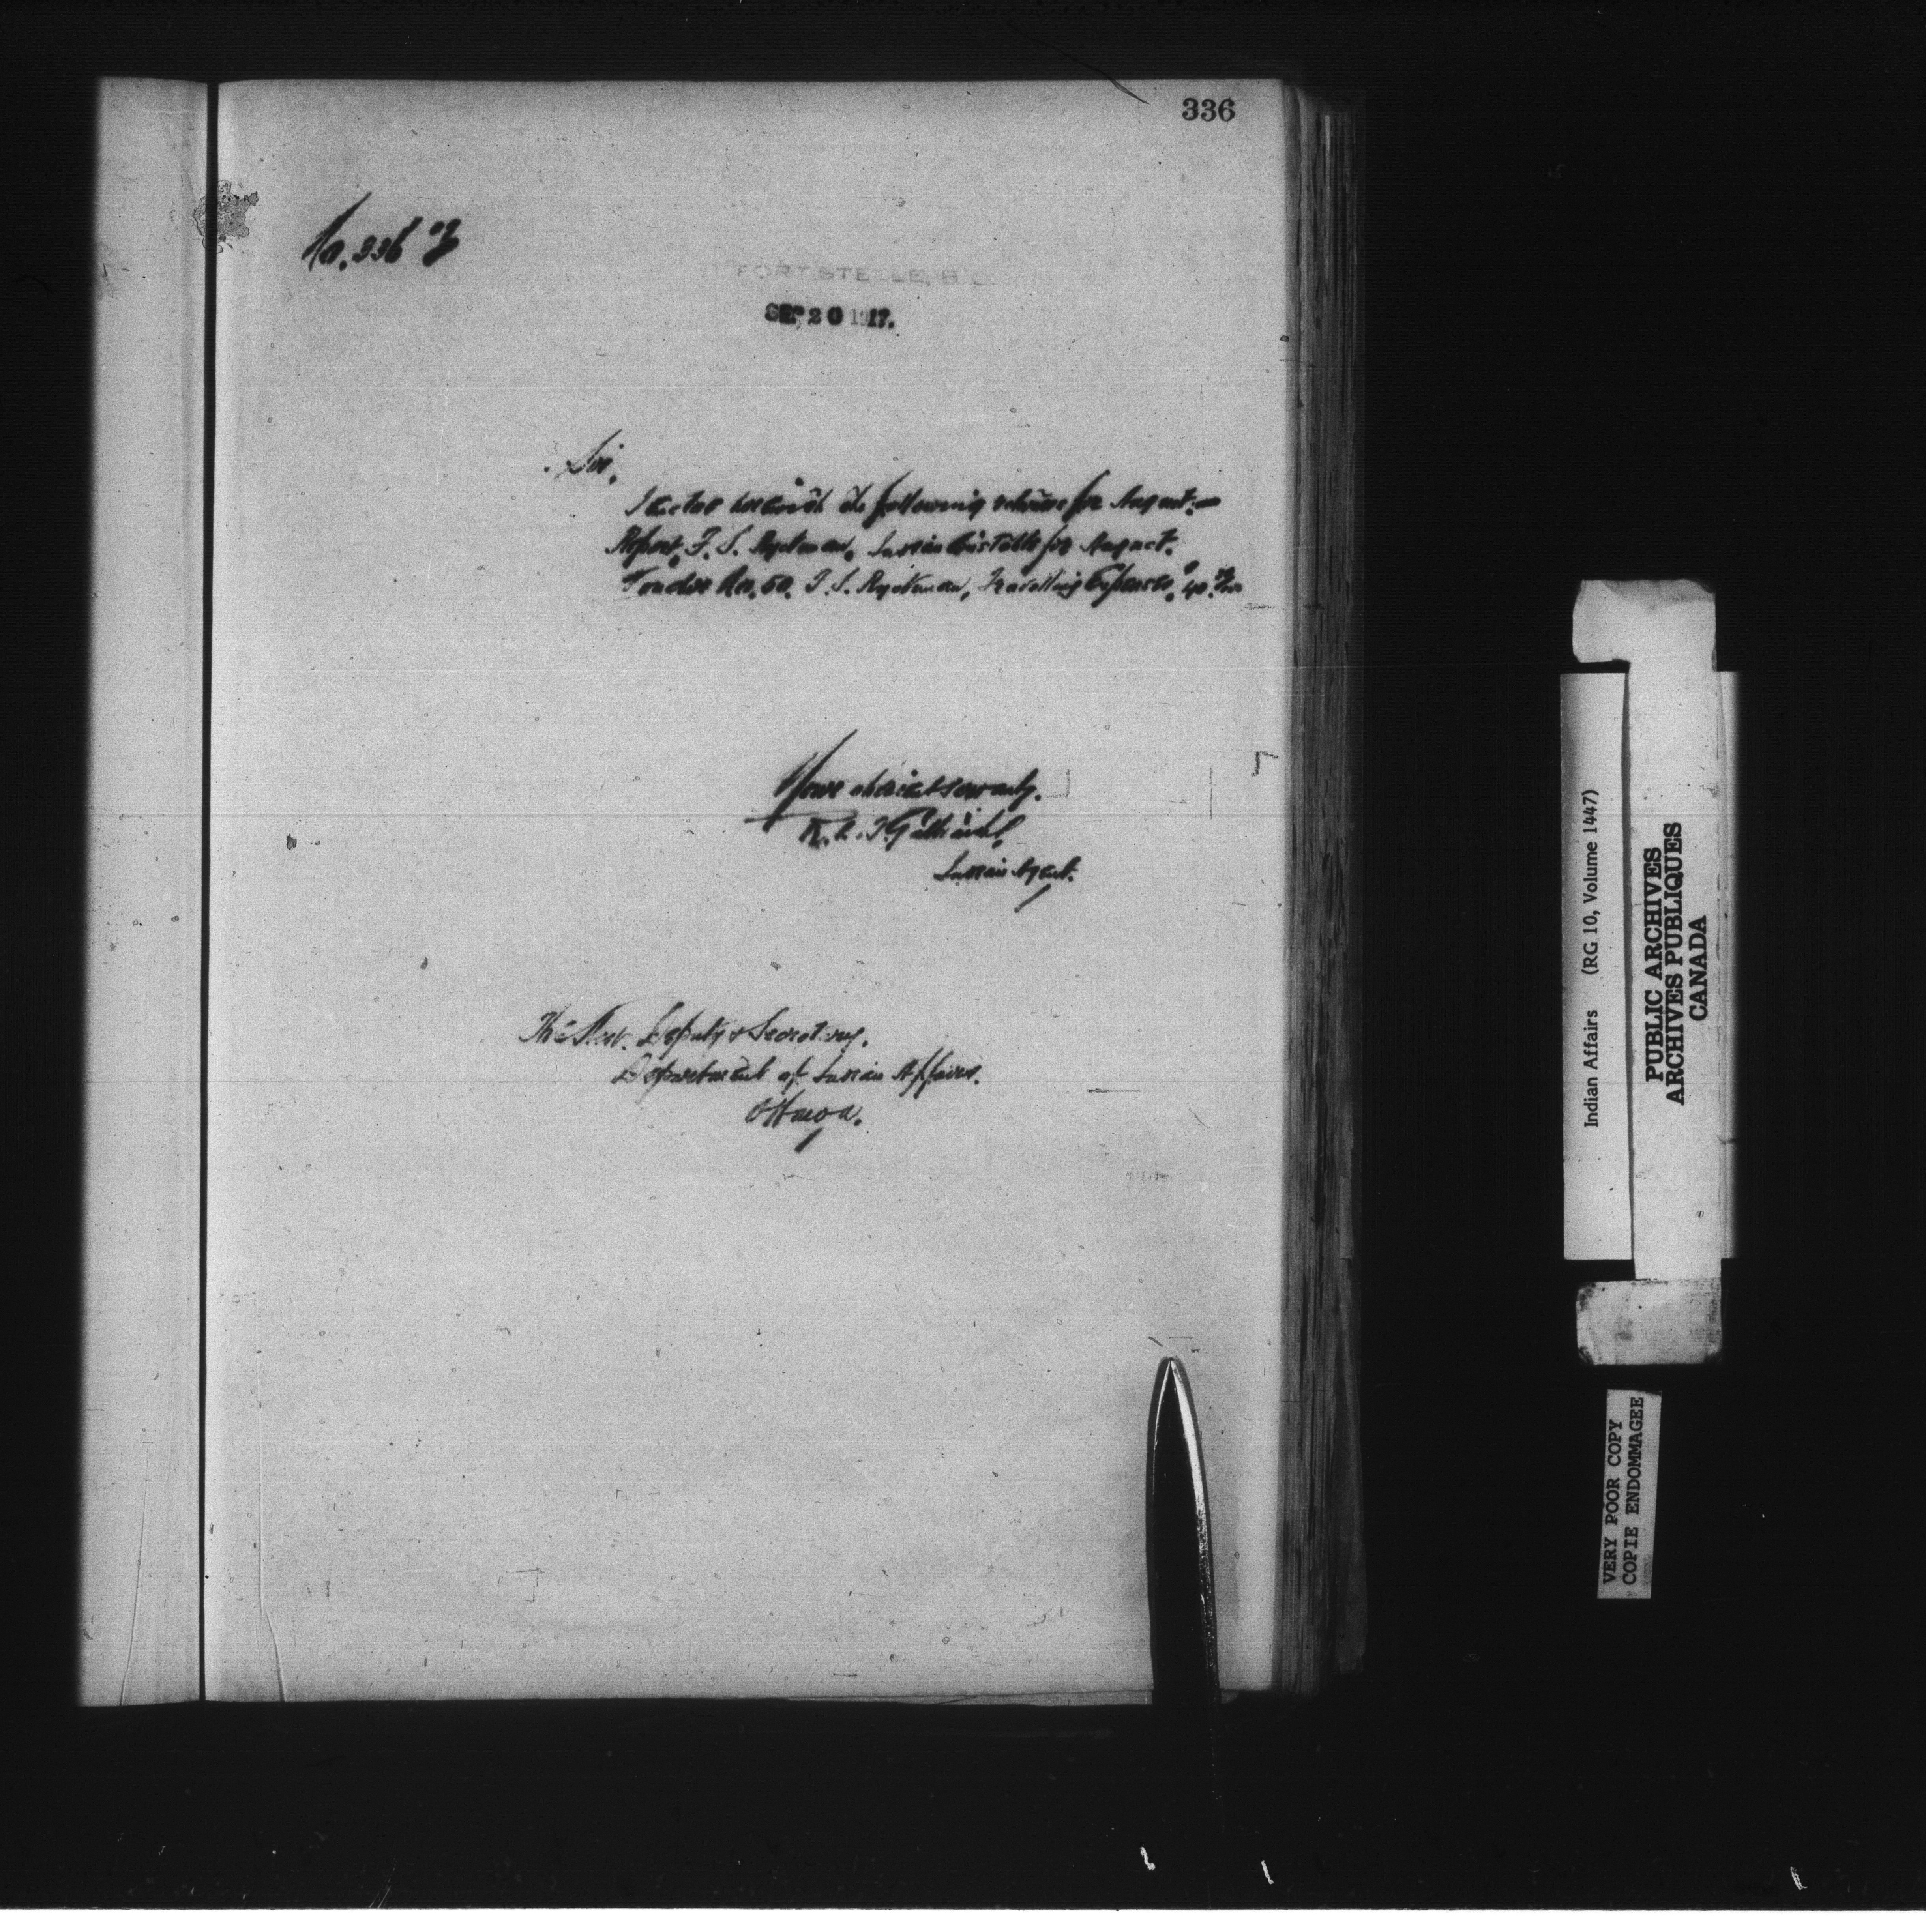 336
No. 336
FORT STEELE, B.C.
SEP 20 1917.
Sir,
I enclose herewith the following returns for August:-
Report, F. S. Ryckman, Indian Constable for August.
Voucher No. 50. F. S. Ryckman, Travelling Expenses,
Your obedient servant,
R. L. T. Galbraith,
Indian Agent.
The Asst. Deputy & Secretary,
Department of Indian Affairs,
Ottawa.
Indian Affairs (RG 10, Volume 1447)
PUBLIC ARCHIVES
ARCHIVES PUBLIQUES
CANADA
VERY POOR COPY
COPIE ENDOMMAGEE